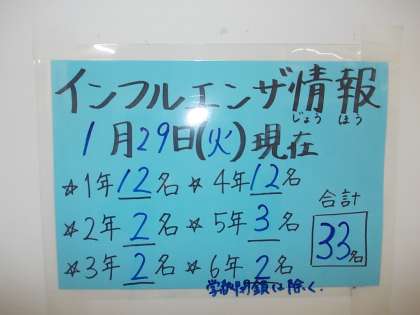 インフルエンザ情報
じょうほう
1月29日(火)現在
☆1年12名 ☆4年12名
☆2年2名 ☆5年3名
☆3年2名 ☆6年2名
合計
33名
学級閉鎖は除く.